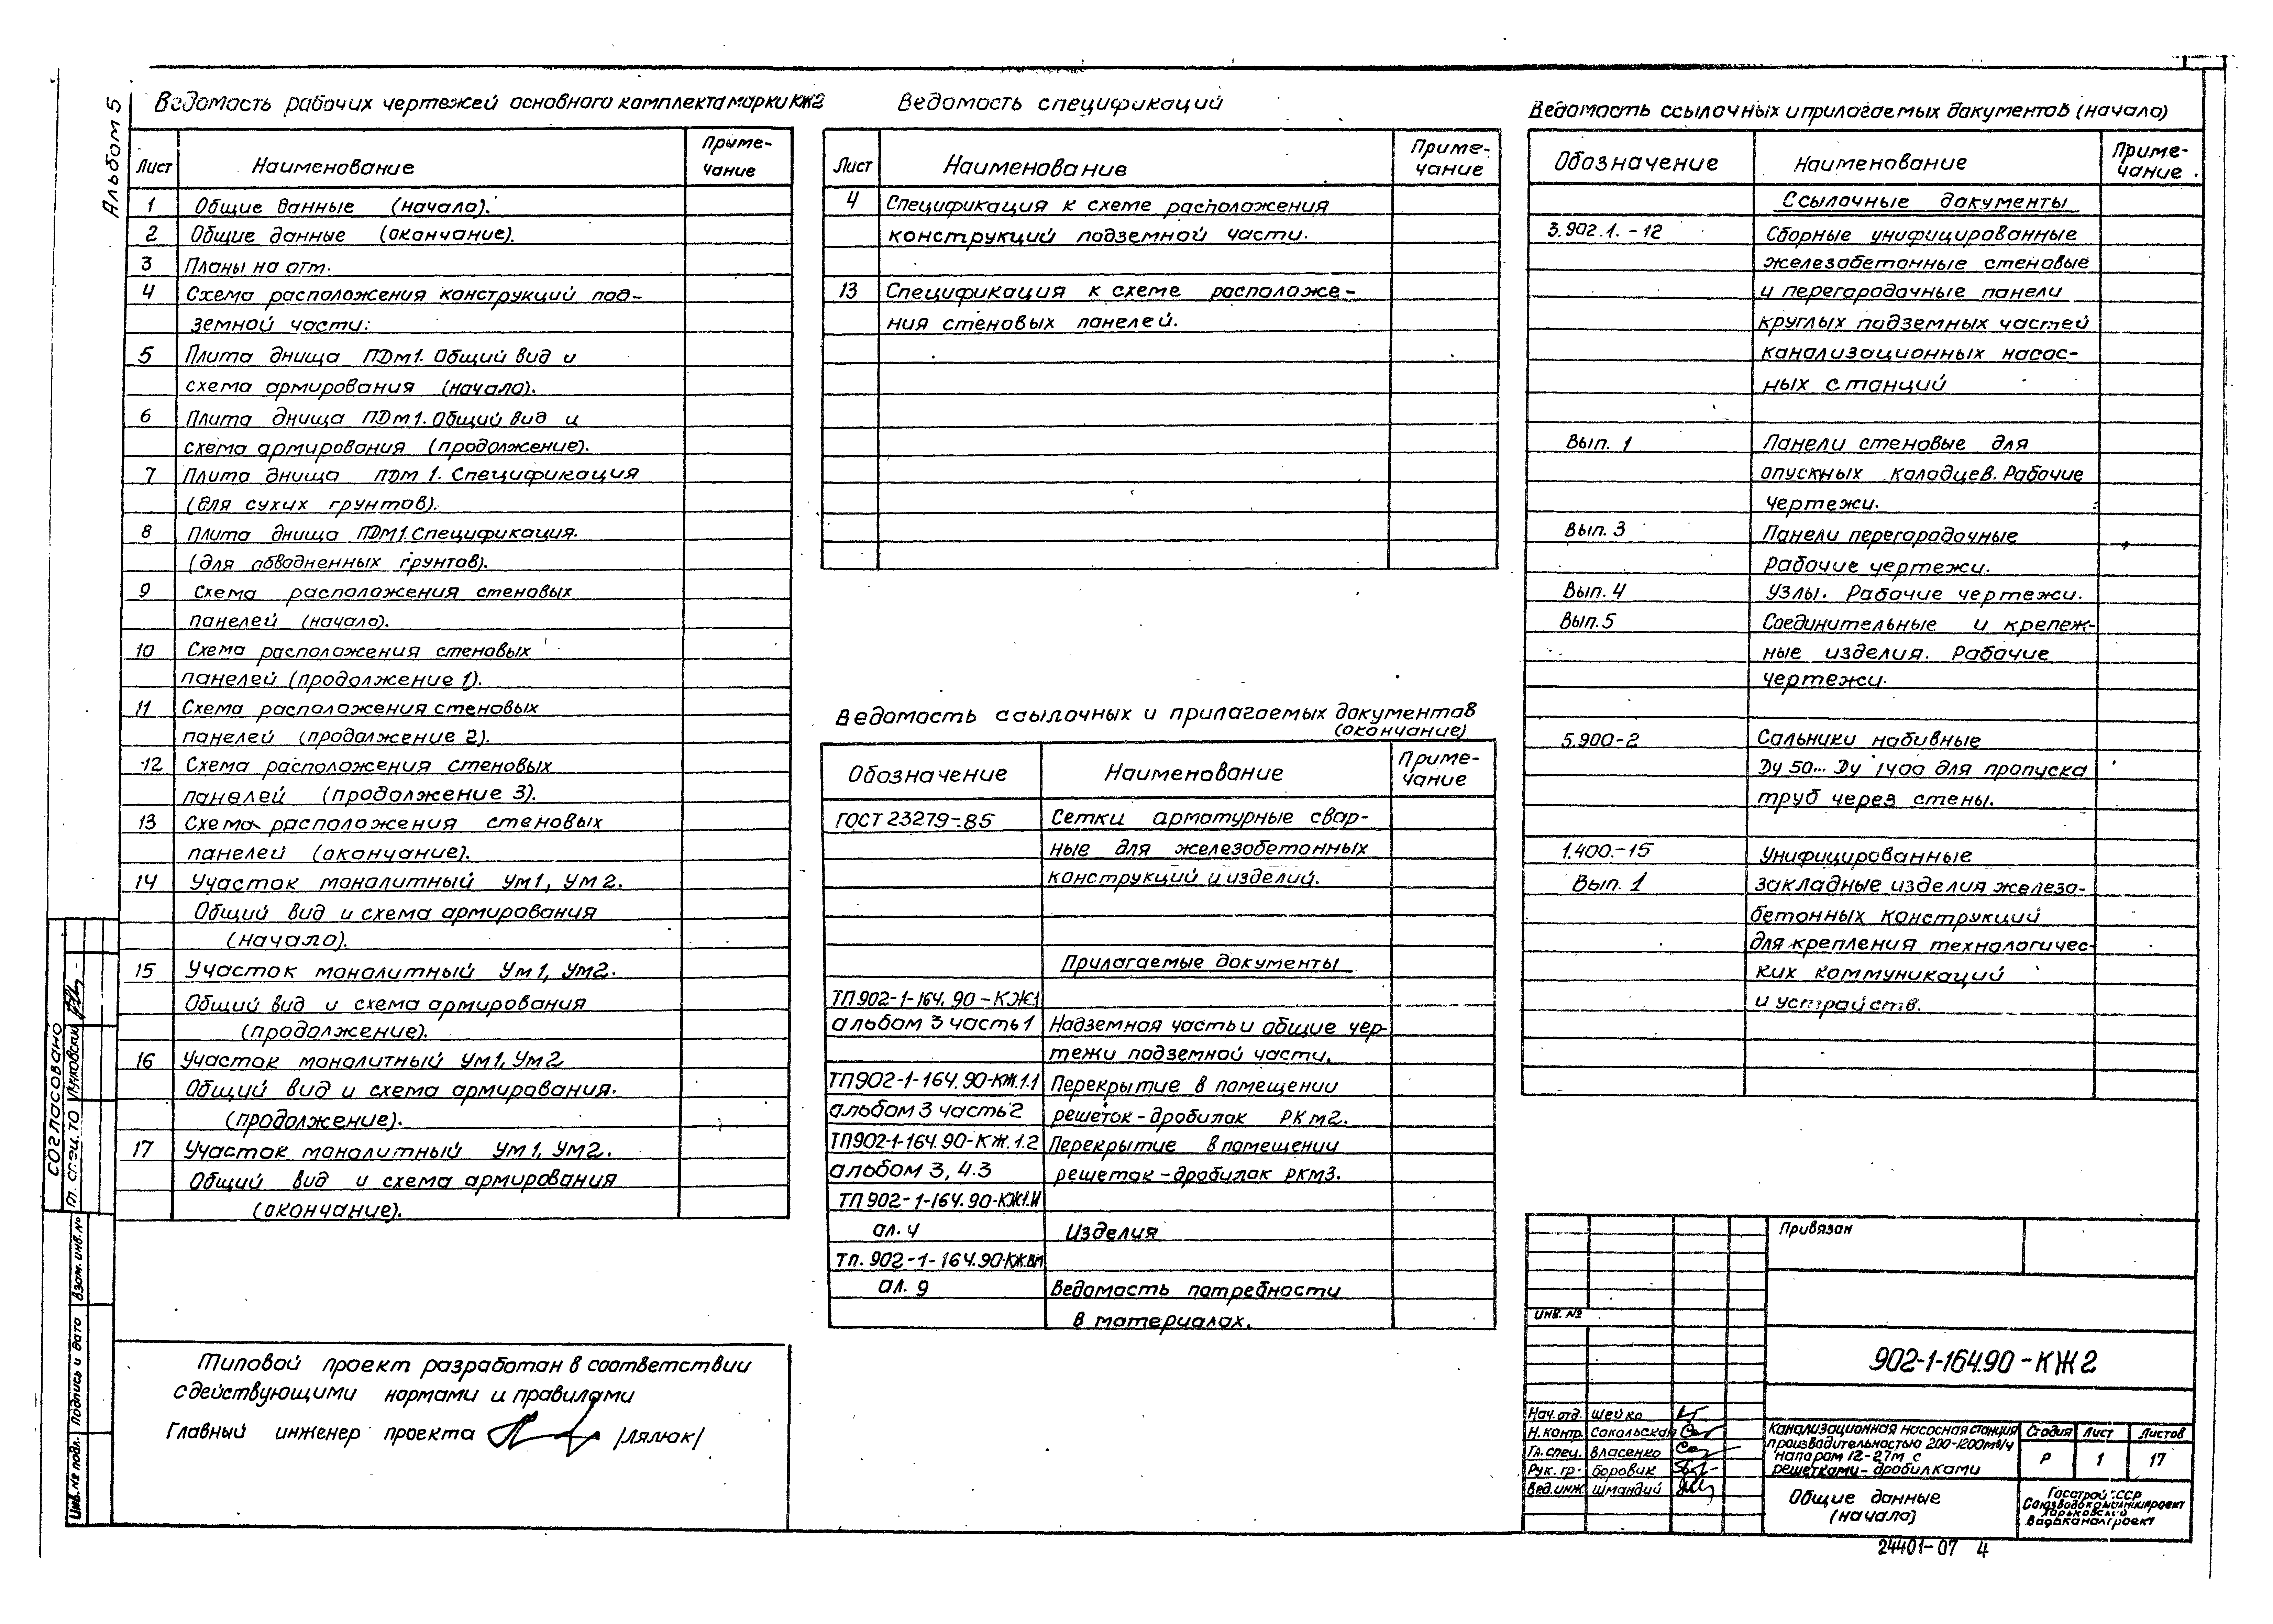 Альбом 5
Ведомость рабочих чертежей основного комплекта марки КЖ2
Лист Наименование Приме-
чание
1 Общие данные (начало).
2 Общие данные (окончание).
3 Планы на отм.
4 Схема расположения конструкций под-
земной части.
5 Плита днища ПДм1. Общий вид и
схема армирования (начало).
6 Плита днища ПДм1. Общий вид и
схема армирования (продолжение).
7 Плита днища ПДм1. Спецификация
(для сухих грунтов).
8 Плита днища ПДм1. Спецификация.
(для обводненных грунтов).
9 Схема расположения стеновых
панелей (начало).
10 Схема расположения стеновых
панелей (продолжение 1).
11 Схема расположения стеновых
панелей (продолжение 2).
12 Схема расположения стеновых
панелей (продолжение 3).
13 Схема расположения стеновых
панелей (окончание).
14 Участок монолитный Ум1, Ум2.
Общий вид и схема армирования
(начало).
15 Участок монолитный Ум1, Ум2.
Общий вид и схема армирования
(продолжение).
16 Участок монолитный Ум1, Ум2
Общий вид и схема армирования.
(продолжение).
17 Участок монолитный Ум1, Ум2.
Общий вид и схема армирования
(окончание).
Типовой проект разработан в соответствии
с действующими нормами и правилами
Главный инженер проекта /Лялюк/
Ведомость спецификаций
Лист Наименование Приме-
чание
4 Спецификация к схеме расположения
конструкций подземной части.
13 Спецификация к схеме расположе-
ния стеновых панелей.
Ведомость ссылочных и прилагаемых документов
(окончание)
Обозначение Наименование Приме-
чание
ГОСТ 23279-85 Сетки арматурные свар-
ные для железобетонных
конструкций и изделий.
Прилагаемые документы
ТП902-1-164.90-КЖ1
альбом 3 часть 1 Надземная часть и общие чер-
тежи подземной части.
ТП902-1-164.90-КЖ.1.1 Перекрытие в помещении
альбом 3 часть 2 решеток-дробилок РКм2.
ТП902-1-164.90-КЖ.1.2 Перекрытие в помещении
альбом 3, ч.3 решеток-дробилок РКм3.
ТП902-1-164.90-КЖ1.И
ал. 4 Изделия
Тп.902-1-164.90-КЖ.ВМ
ал. 9 Ведомость потребности
в материалах.
Ведомость ссылочных и прилагаемых документов (начало)
Обозначение Наименование Приме-
чание.
Ссылочные документы
3.902.1.-12 Сборные унифицированные
железобетонные стеновые
и перегородочные панели
круглых подземных частей
канализационных насос-
ных станций
Вып. 1 Панели стеновые для
опускных колодцев. Рабочие
чертежи.
Вып. 3 Панели перегородочные
Рабочие чертежи.
Вып. 4 Узлы. Рабочие чертежи.
Вып. 5 Соединительные и крепеж-
ные изделия. Рабочие
чертежи.
5.900-2 Сальники набивные
Ду 50... Ду 1400 для пропуска
труб через стены.
1.400.-15 Унифицированные
Вып. 1 закладные изделия железо-
бетонных конструкций
для крепления технологичес-
ких коммуникаций
и устройств.
Привязан
Инв. №
902-1-164.90-КЖ2
Нач.отд. Шейко
Н.контр. Сокольская
Гл.спец. Власенко
Рук.гр. Боровик
Вед.инж. Шмандий
Канализационная насосная станция
производительностью 200-1200м³/ч
напором 12-27м с
решетками-дробилками
Стадия Лист Листов
Р 1 17
Общие данные
(начало)
Госстрой СССР
Союзводоканалниипроект
Харьковский
Водоканалпроект
24401-07 4
СОГЛАСОВАНО
Гл. спец. ТО
Инв. № подл. Подпись и дата Взам. инв. №